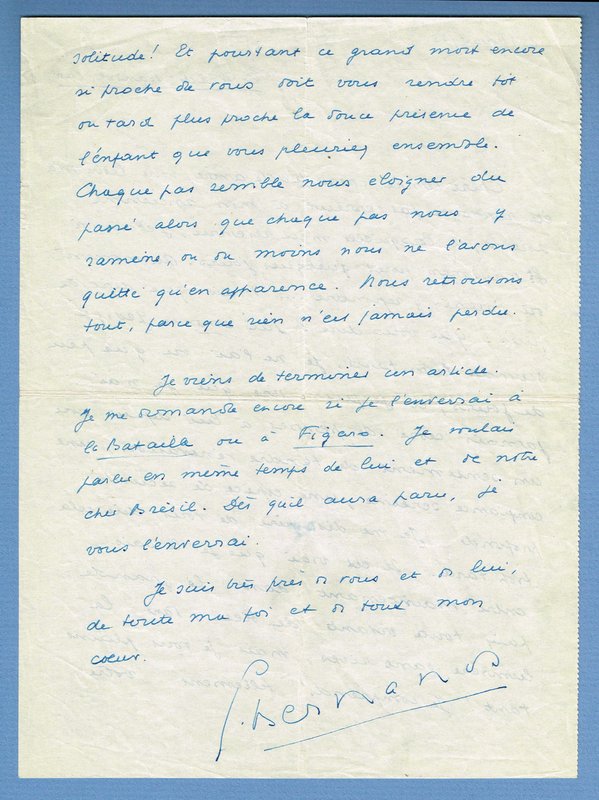 solitude! Et pourtant ce grand mort encore
si proche de vous doit vous rendre tôt
ou tard plus proche la douce présence de
l'enfant que vous pleuriez ensemble.
Chaque pas semble nous éloigner du
passé alors que chaque pas nous y
ramène, ou du moins nous ne l'avons
quitté qu'en apparence. Nous retrouvons
tout, parce que rien n'est jamais perdu.
Je viens de terminer un article.
Je me demande encore si je l'enverrai à
la Bataille ou à Figaro. Je voulais
parler en même temps de lui et de notre
cher Brésil. Dès qu'il aura paru, je
vous l'enverrai.
Je suis très près de vous et de lui,
de toute ma foi et de tout mon
cœur.
G. Bernanos